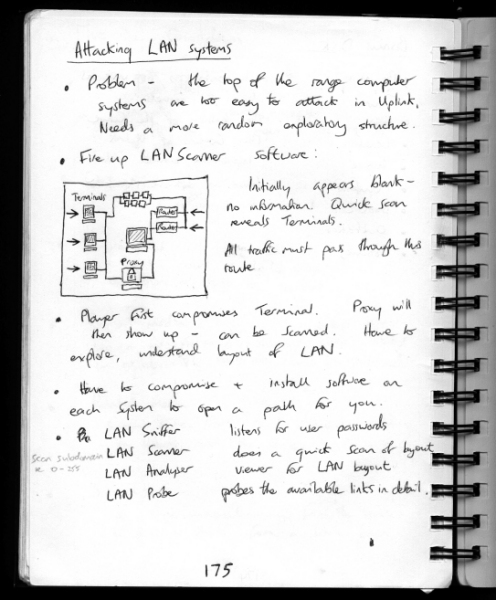 Attacking LAN systems
• Problem - the top of the range computer
systems are too easy to attack in Uplink.
Needs a more random exploratory structure.
• Fire up LANScanner software:
Terminals
Router
Router
Proxy
Initially appears blank -
no information. Quick scan
reveals Terminals.
All traffic must pass through this
route
• Player first compromises Terminal. Proxy will
then show up - can be scanned. Have to
explore, understand layout of LAN.
• Have to compromise + install software on
each system to open a path for you.
• LAN Sniffer listens for user passwords
LAN Scanner does a quick scan of layout
LAN Analyser viewer for LAN layout
LAN Probe probes the available links in detail.
Scan subdomain
0-255
175